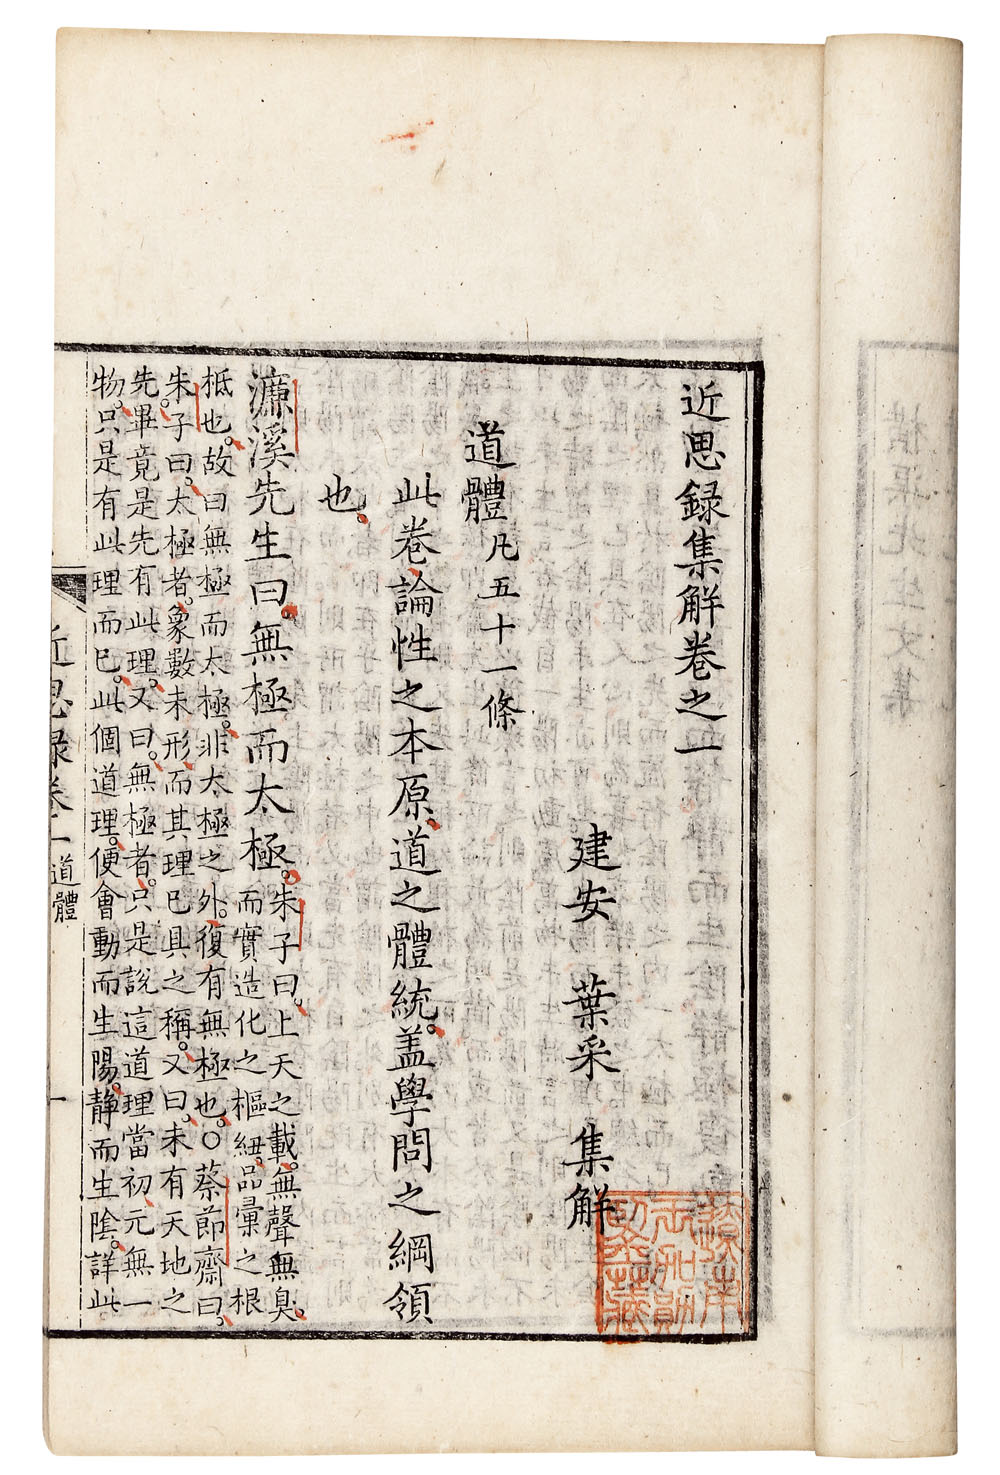 近思録集解卷之一
建安 葉采 集解
道體凡五十一條
此卷論性之本原。道之體統。盖學問之綱領
也。
濂溪先生曰。無極而太極。朱子曰。上天之載。無聲無臭。
而實造化之樞紐。品彙之根
柢也。故曰無極而太極。非太極之外。復有無極也。○蔡節齋曰。
朱子曰。太極者。象數未形而其理已具之稱。又曰。未有天地之
先。畢竟是先有此理。又曰。無極者。只是說這道理當初元無一
物。只是有此理而已。此個道理。便會動而生陽。静而生陰。詳此
近思録卷一
道體
一